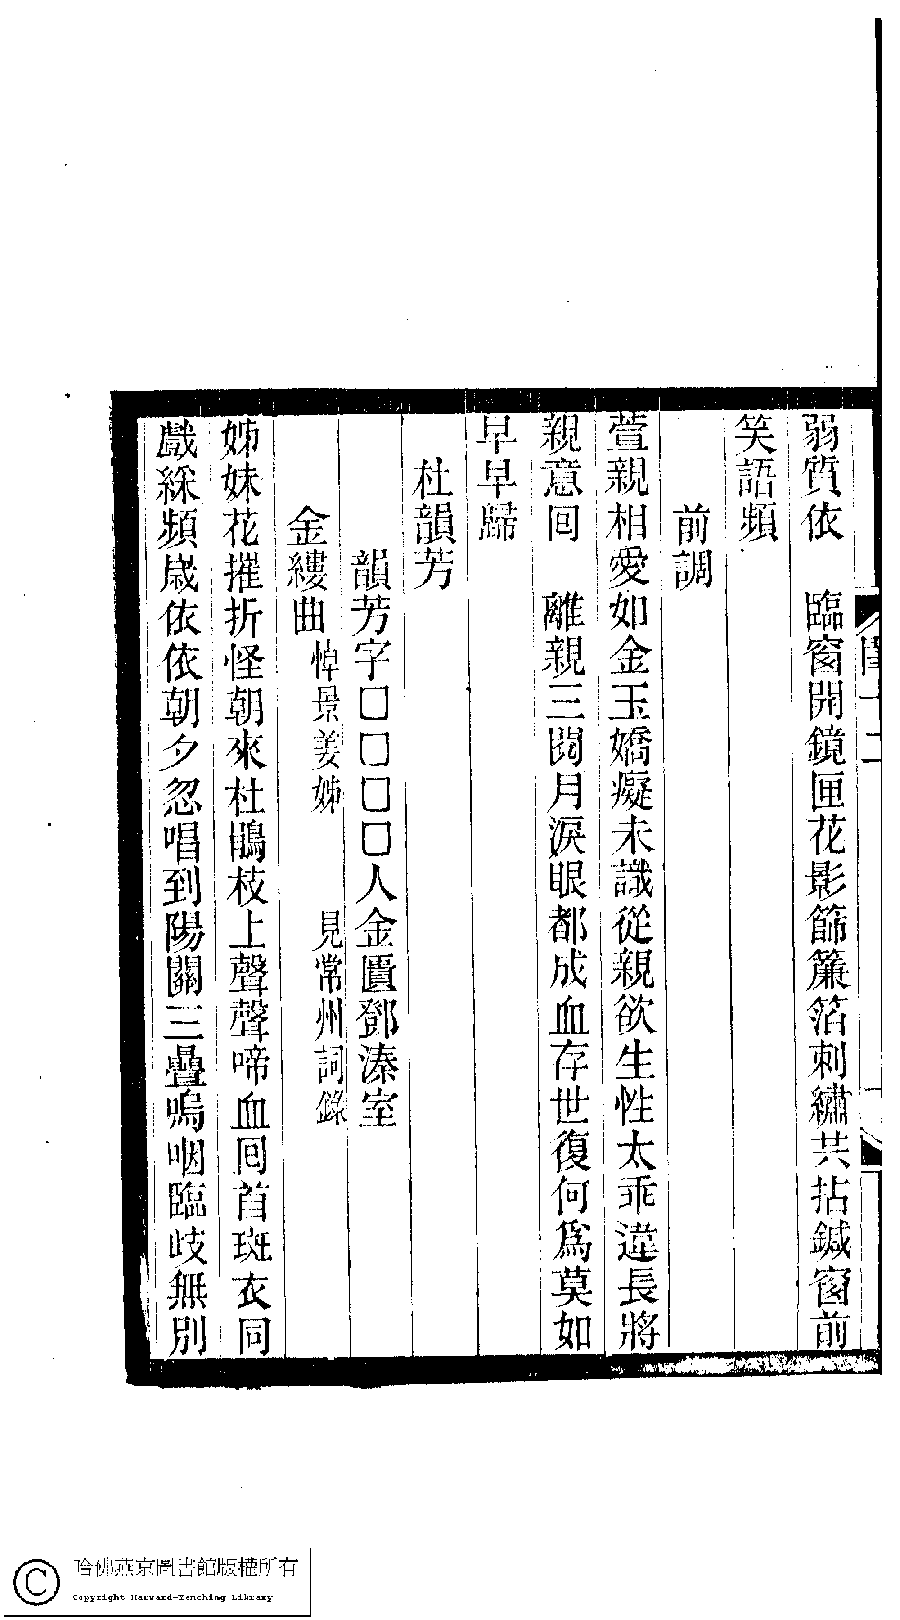 弱質依　臨窗開鏡匣花影篩簾箔刺繡共拈鍼窗前
笑語頻
前調
萱親相愛如金玉嬌癡未識從親欲生性太乖違長將
親意回　離親三閱月淚眼都成血存世復何爲莫如
早早歸
杜韻芳
韻芳字□□□□人金匱鄧溱室
金縷曲 悼景姜姊　見常州詞錄
姊妹花摧折怪朝來杜鵑枝上聲聲啼血囘首斑衣同
戲綵頻歲依依朝夕忽唱到陽關三疊嗚咽臨歧無別
哈佛燕京圖書館版權所有
Copyright Harvard-Yenching Library